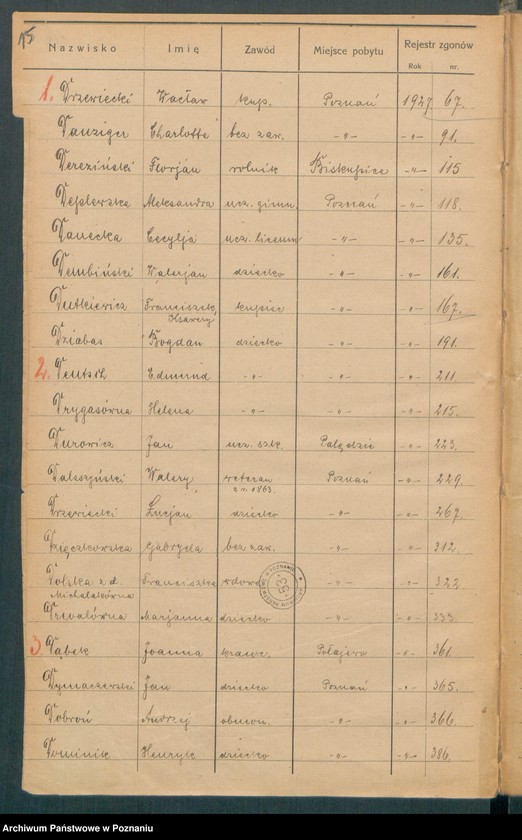 15
Nazwisko Imię Zawód Miejsce pobytu Rejestr zgonów
Rok nr.
1. Drzewiecki Wacław kup. Poznań 1927 67.
Danziger Charlotte bez zaw. -„- -„- 91.
Dereziński Florjan rolnik Biskupice -„- 115
Deplewska Aleksandra ucz. gimn. Poznań -„- 118.
Danecka Cecylja ucz. liceum -„- -„- 135.
Dembiński Walerjan dziecko -„- -„- 161.
Dutkiewicz Franciszek kupiec -„- -„- 167.
Ksawery
Dziabas Bogdan dziecko -„- -„- 191.
2. Deutsch Edmund -„- -„- -„- 211.
Drygasówna Helena -„- -„- -„- 215.
Durowicz Jan ucz. szk. Palędzie -„- 223.
Daleszyński Walery weteran Poznań -„- 229.
z r. 1863.
Drzewiecki Lucjan dziecko -„- -„- 267.
Dzięczkowska Gabryela bez zaw. -„- -„- 312.
Dolska z d. Franciszka wdowa -„- -„- 322.
Michalakówna
Drwalówna Marjanna dziecko -„- -„- 333.
3. Dąbek Joanna krawc. Połajewo -„- 361.
Dymaczewski Jan dziecko Poznań -„- 365.
Dobroń Andrzej -„- -„- 366.
Dominik Henryk dziecko -„- -„- 386.
53
Archiwum Państwowe w Poznaniu